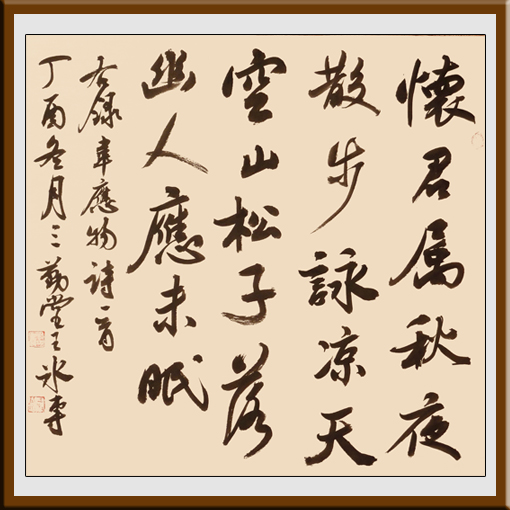 懷君属秋夜
散步詠凉天
空山松子落
幽人應未眠
右錄韋應物詩一首
丁酉冬月三勤堂王冰書